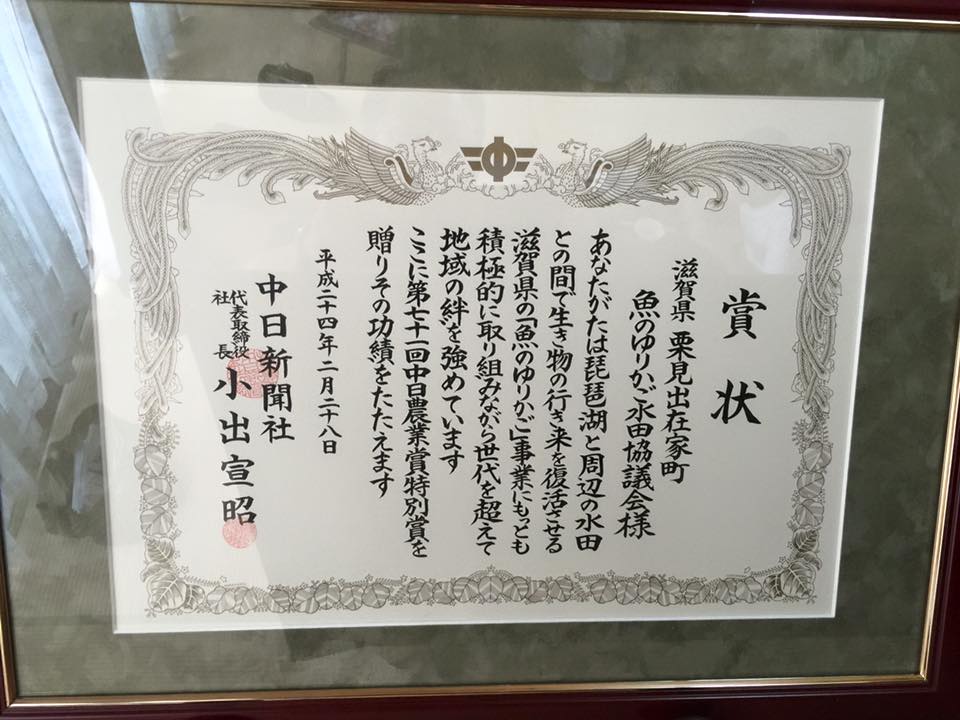 賞状
滋賀県 栗見出在家町
魚のゆりかご水田協議会様
あなたがたは琵琶湖と周辺の水田
との間で生き物の行き来を復活させる
滋賀県の「魚のゆりかご」事業にもっとも
積極的に取り組みながら世代を超えて
地域の絆を強めています
ここに第七十一回中日農業賞特別賞を
贈りその功績をたたえます
平成二十四年二月二十八日
中日新聞社
代表取締役
社長
小出宣昭